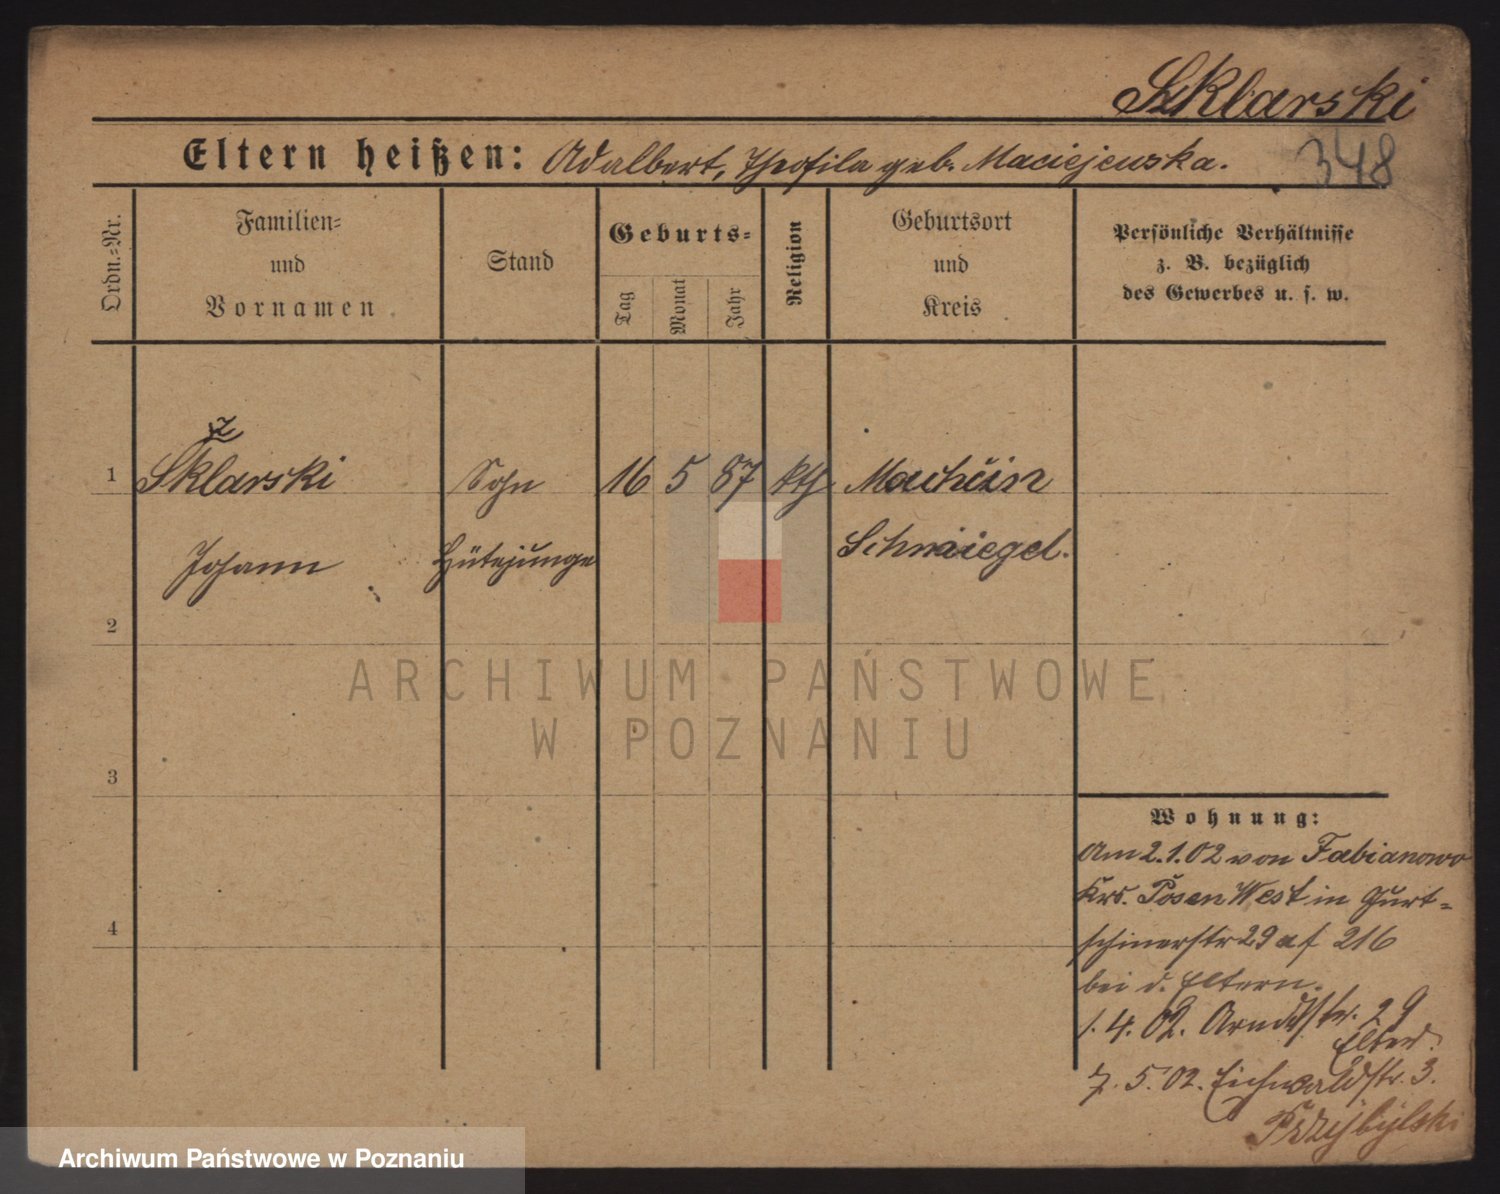 Szklarski
Eltern heißen: Adalbert, Theofila geb. Maciejewska.
348
Ordn.=Nr.
Familien=
und
Vornamen
Stand
Geburts=
Tag
Monat
Jahr
Religion
Geburtsort
und
Kreis
Persönliche Verhältnisse
z. B. bezüglich
des Gewerbes u. s. w.
z
1 Sklarski Sohn 16 5 87 kth Machcin
Johann Hütejunge Schmiegel.
2
ARCHIWUM PAŃSTWOWE
W POZNANIU
3
Wohnung:
Am 2.1.02 von Fabianowo
Krs. Posen West in Gurt=
schinerstr 29 af 216
bei d. Eltern.
1. 4. 02. Arndtstr. 29
Elter.
7. 5. 02. Eichwaldstr. 3.
Przybylski
4
Archiwum Państwowe w Poznaniu